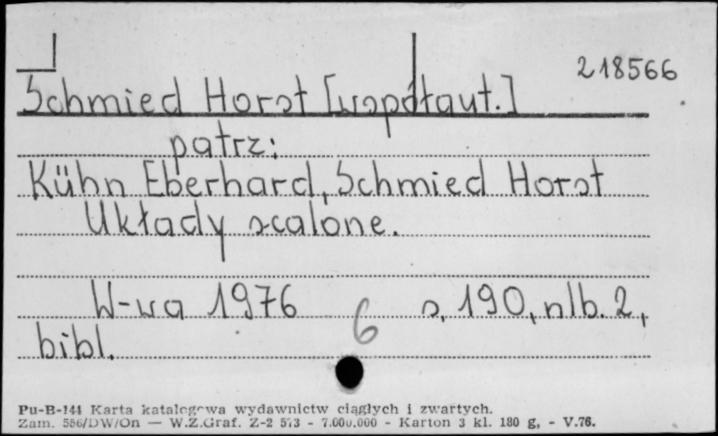 218566
Schmied Horst [współaut.]
patrz:
Kühn Eberhard, Schmied Horst
Układy scalone.
W-wa 1976 s, 190, nlb. 2,
6
bibl.
Pu-B-144 Karta katalogowa wydawnictw ciągłych i zwartych.
Zam. 556/DW/On — W.Z.Graf. Z-2 513 - 7.000.000 - Karton 3 kl. 180 g, - V.76.